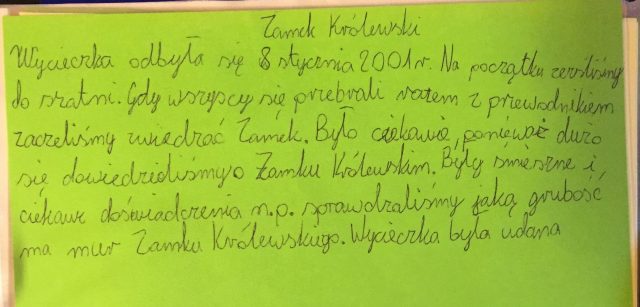 Zamek Królewski
Wycieczka odbyła się 8 stycznia 2001r. Na początku zeszliśmy
do szatni. Gdy wszyscy się przebrali razem z przewodnikiem
zaczeliśmy zwiedzać Zamek. Było ciekawie, ponieważ dużo
się dowiedzieliśmy o Zamku Królewskim. Były śmieszne i
ciekawe doświadczenia n.p. sprawdzaliśmy jaką grubość
ma mur Zamku Królewskiego. Wycieczka była udana